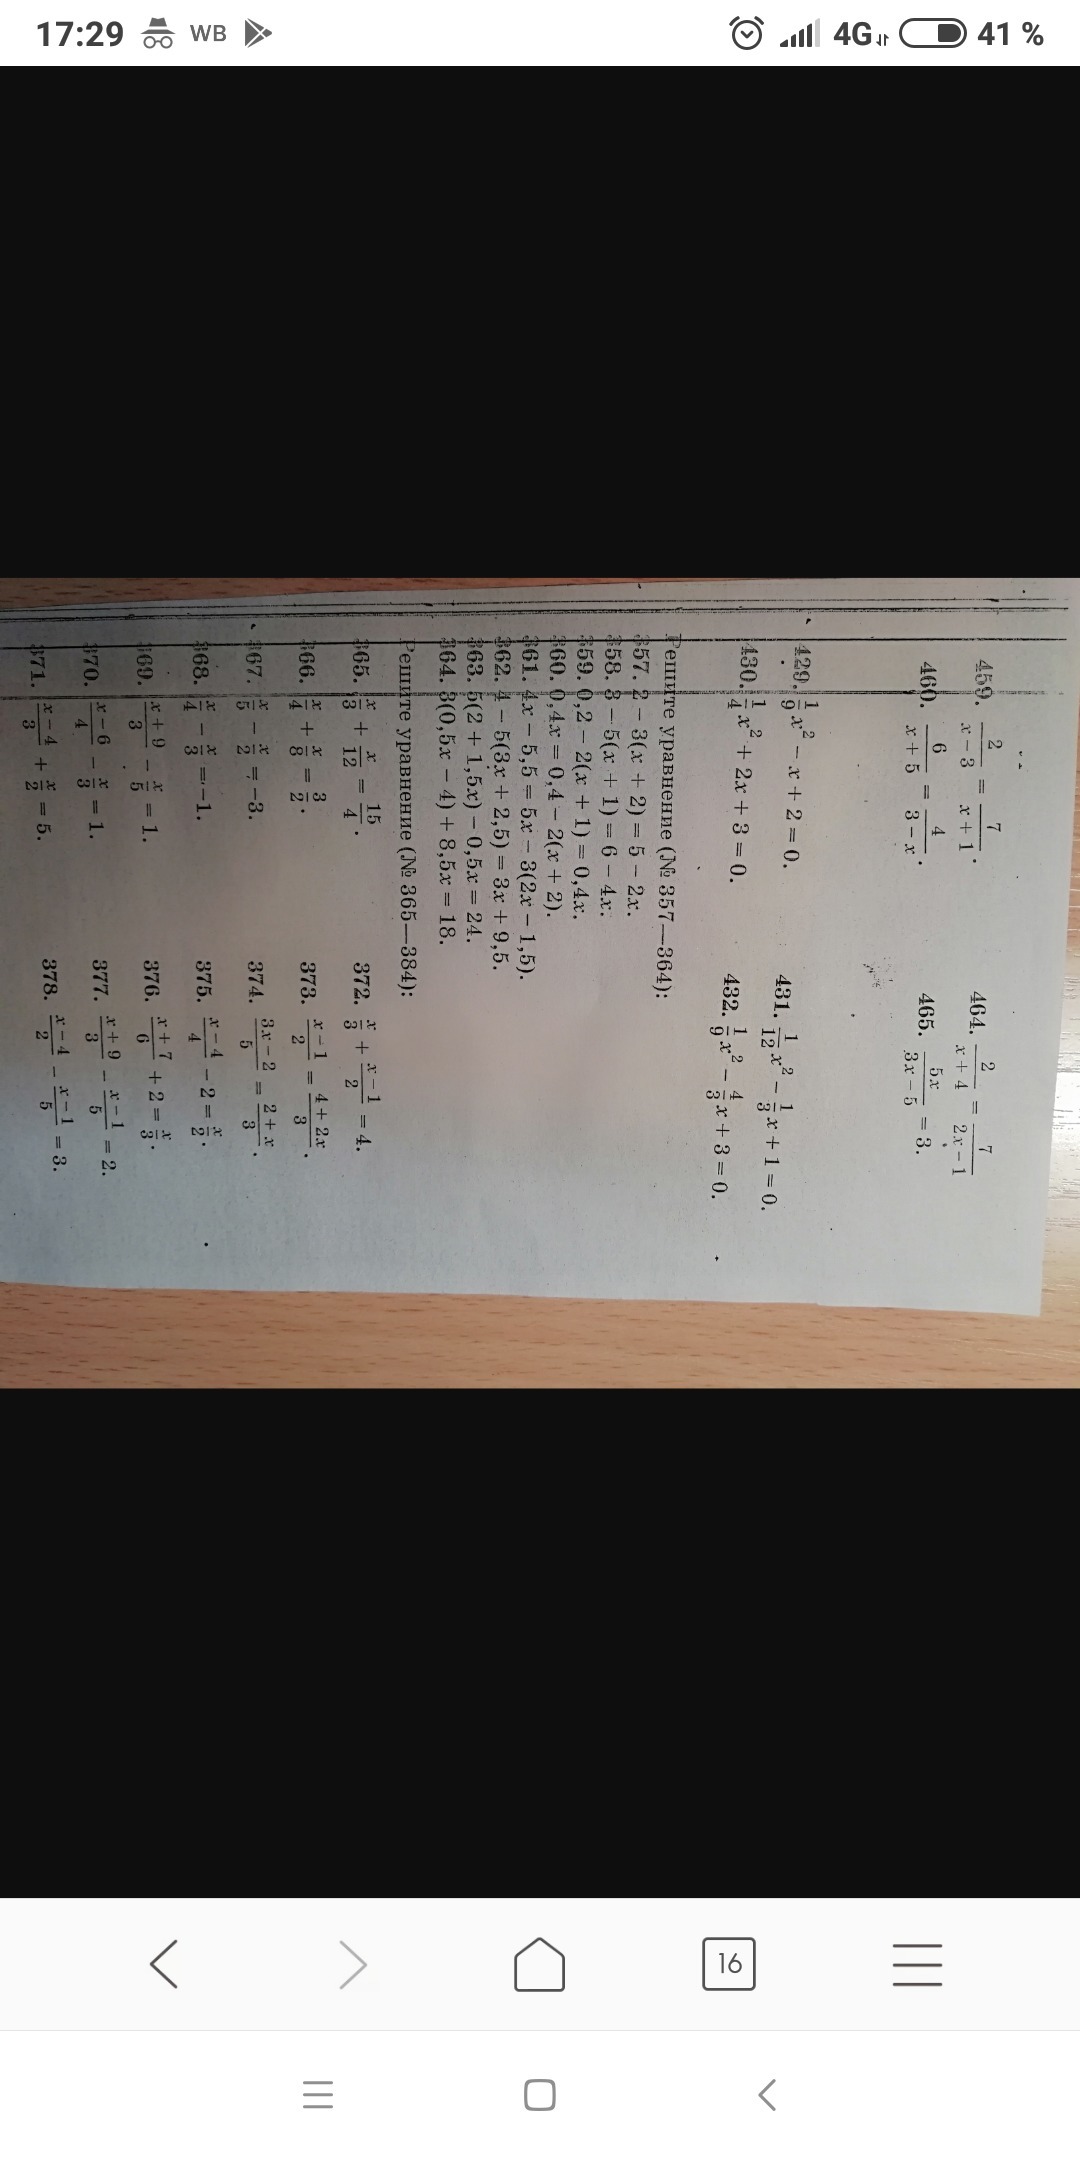 17:29 WB 4G 41 %
459. 2/(x − 3) = 7/(x + 1). 464. 2/(x + 4) = 7/(2x − 1)
460. 6/(x + 5) = 4/(3 − x). 465. 5x/(3x − 5) = 3.
429. 1/9 x² − x + 2 = 0. 431. 1/12 x² − 1/3 x + 1 = 0.
430. 1/4 x² + 2x + 3 = 0. 432. 1/9 x² − 4/3 x + 3 = 0.
Решите уравнение (№ 357—364):
357. 2 − 3(x + 2) = 5 − 2x.
358. 3 − 5(x + 1) = 6 − 4x.
359. 0,2 − 2(x + 1) = 0,4x.
360. 0,4x = 0,4 − 2(x + 2).
361. 4x − 5,5 = 5x − 3(2x − 1,5).
362. 4 − 5(3x + 2,5) = 3x + 9,5.
363. 5(2 + 1,5x) − 0,5x = 24.
364. 3(0,5x − 4) + 8,5x = 18.
Решите уравнение (№ 365—384):
365. x/3 + x/12 = 15/4. 372. x/3 + (x − 1)/2 = 4.
366. x/4 + x/8 = 3/2. 373. (x − 1)/2 = (4 + 2x)/3.
367. x/5 − x/2 = −3. 374. (3x − 2)/5 = (2 + x)/3.
368. x/4 − x/3 = −1. 375. (x − 4)/4 − 2 = x/2.
369. (x + 9)/3 − x/5 = 1. 376. (x + 7)/6 + 2 = x/3.
370. (x − 6)/4 − x/3 = 1. 377. (x + 9)/3 − (x − 1)/5 = 2.
371. (x − 4)/3 + x/2 = 5. 378. (x − 4)/2 − (x − 1)/5 = 3.
16